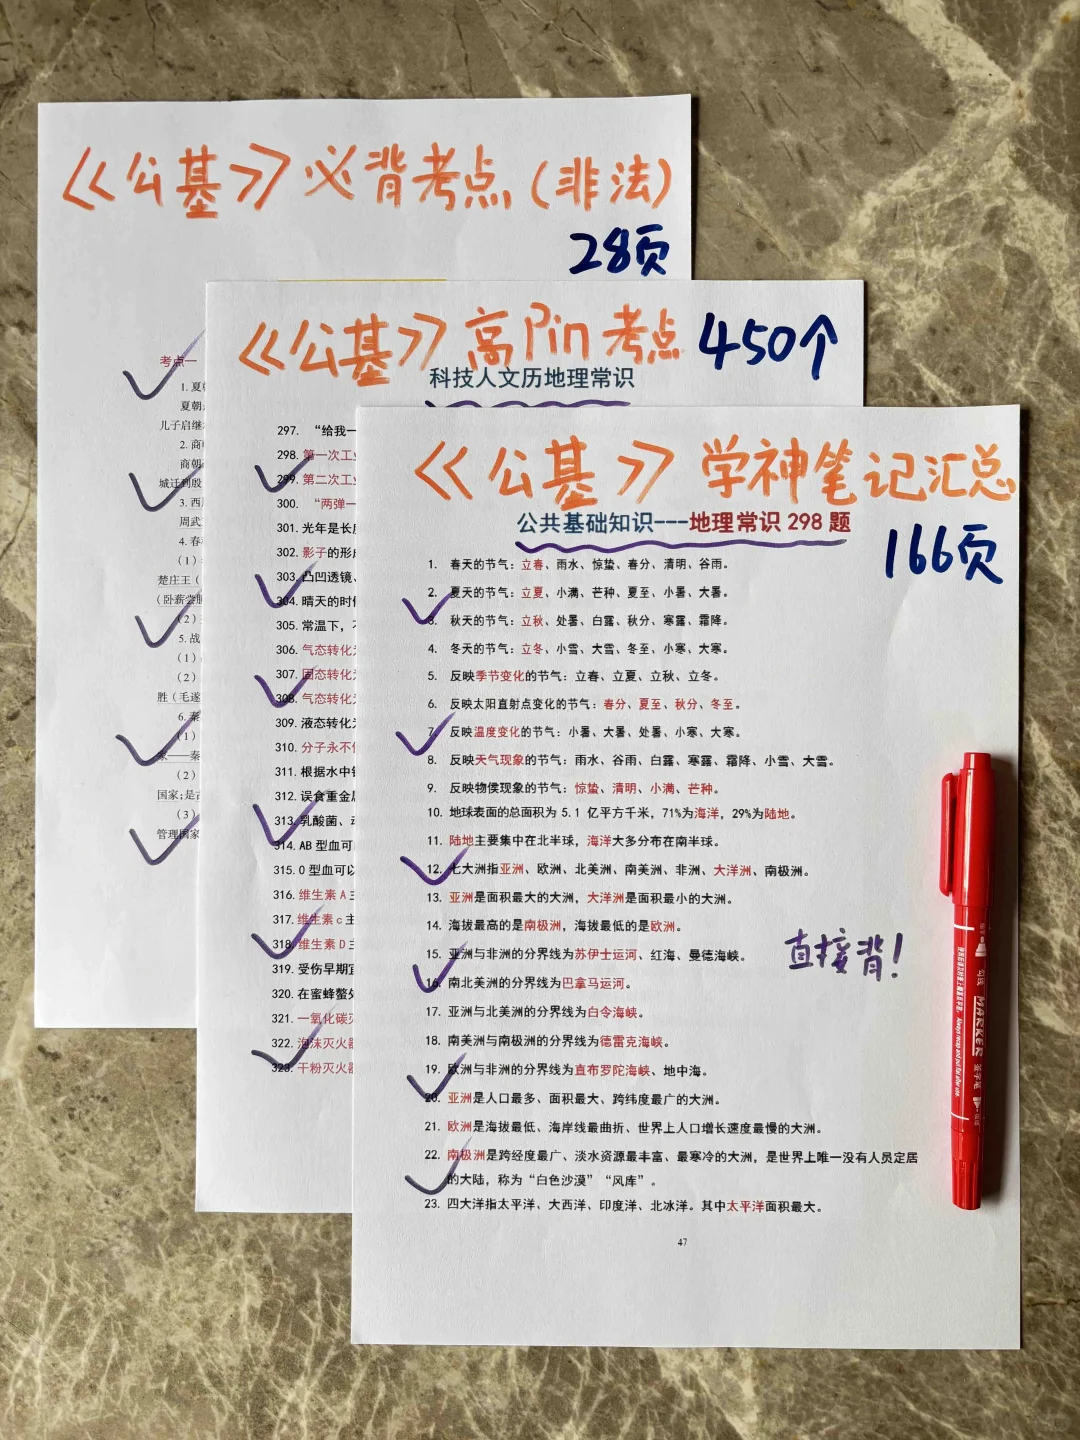 《公基》必背考点(非法)
28页
考点一
1. 夏
夏朝
儿子启继
2. 商
商朝
城迁到殷
3. 西
周武
4. 春
(1)
楚庄王(
(卧薪尝胆
(2)
5. 战
(1)
(2)
胜(毛遂
6. 秦
(1)
家——秦
(2)
国家;是古
(3)
管理国家
《公基》高Pin考点 450个
科技人文历地理常识
297. “给我一
298. 第一次工
299. 第二次工
300. “两弹一
301. 光年是长度
302. 影子的形成
303. 凸凹透镜、
304. 晴天的时候
305. 常温下，
306. 气态转化为
307. 固态转化为
308. 气态转化为
309. 液态转化为
310. 分子永不停
311. 根据水中
312. 误食重金属
313. 乳酸菌、
314. AB 型血可
315. O 型血可以
316. 维生素 A
317. 维生素 c 主
318. 维生素 D 主
319. 受伤早期宜
320. 在蜜蜂螫
321. 一氧化碳
322. 泡沫灭火器
323. 干粉灭火器
《公基》学神笔记汇总
公共基础知识---地理常识 298 题
166页
1. 春天的节气：立春、雨水、惊蛰、春分、清明、谷雨。
2. 夏天的节气：立夏、小满、芒种、夏至、小暑、大暑。
3. 秋天的节气：立秋、处暑、白露、秋分、寒露、霜降。
4. 冬天的节气：立冬、小雪、大雪、冬至、小寒、大寒。
5. 反映季节变化的节气：立春、立夏、立秋、立冬。
6. 反映太阳直射点变化的节气：春分、夏至、秋分、冬至。
7. 反映温度变化的节气：小暑、大暑、处暑、小寒、大寒。
8. 反映天气现象的节气：雨水、谷雨、白露、寒露、霜降、小雪、大雪。
9. 反映物侯现象的节气：惊蛰、清明、小满、芒种。
10. 地球表面的总面积为 5.1 亿平方千米，71%为海洋，29%为陆地。
11. 陆地主要集中在北半球，海洋大多分布在南半球。
12. 七大洲指亚洲、欧洲、北美洲、南美洲、非洲、大洋洲、南极洲。
13. 亚洲是面积最大的大洲，大洋洲是面积最小的大洲。
14. 海拔最高的是南极洲，海拔最低的是欧洲。
15. 亚洲与非洲的分界线为苏伊士运河、红海、曼德海峡。
直接背！
16. 南北美洲的分界线为巴拿马运河。
17. 亚洲与北美洲的分界线为白令海峡。
18. 南美洲与南极洲的分界线为德雷克海峡。
19. 欧洲与非洲的分界线为直布罗陀海峡、地中海。
20. 亚洲是人口最多、面积最大、跨纬度最广的大洲。
21. 欧洲是海拔最低、海岸线最曲折、世界上人口增长速度最慢的大洲。
22. 南极洲是跨经度最广、淡水资源最丰富、最寒冷的大洲，是世界上唯一没有人员定居
的大陆，称为“白色沙漠”“风库”。
23. 四大洋指太平洋、大西洋、印度洋、北冰洋。其中太平洋面积最大。
47
勾线 MARKER 签字笔